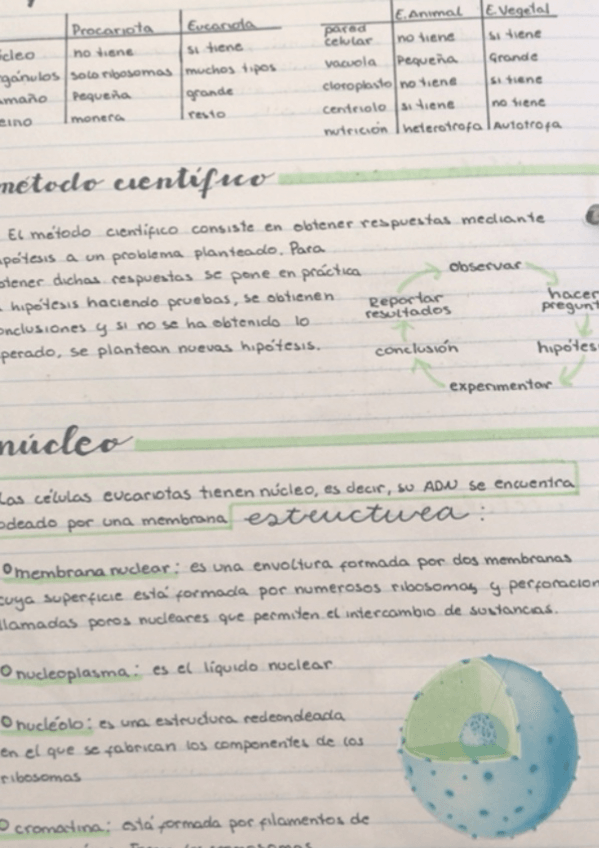 Procariota Eucariota
icleo no tiene si tiene
gánulos solo ribosomas muchos tipos
maño Pequeña grande
eino monera resto
E.Animal E.Vegetal
pared celular no tiene si tiene
vacuola Pequeña Grande
cloroplasto no tiene si tiene
centriolo si tiene no tiene
nutrición heterotrofa Autotrofa
método científico
El método científico consiste en obtener respuestas mediante
ipótesis a un problema planteado. Para
btener dichas respuestas se pone en práctica
a hipótesis haciendo pruebas, se obtienen
onclusiones y si no se ha obtenido lo
perado, se plantean nuevas hipótesis.
observar
hacer
pregunt
hipótes
experimentar
conclusión
Reportar
resultados
núcleo
Las células eucariotas tienen núcleo, es decir, su ADN se encuentra
odeado por una membrana estructura:
membrana nuclear: es una envoltura formada por dos membranas
cuya superficie está formada por numerosos ribosomas y perforacion
llamadas poros nucleares que permiten el intercambio de sustancias.
nucleoplasma: es el líquido nuclear
nucléolo: es una estructura redeondeada
en el que se fabrican los componentes de los
ribosomas
cromatina: está formada por filamentos de